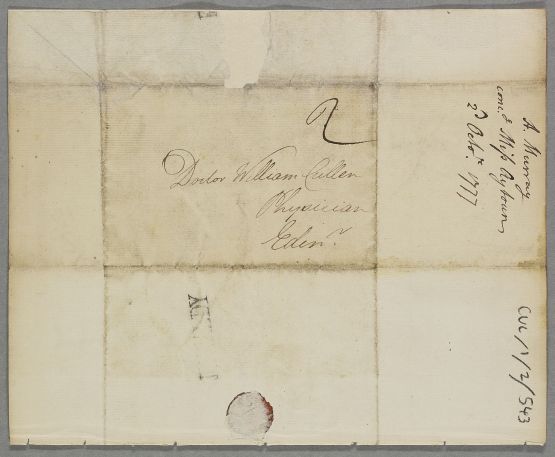 2
Doctor William Cullen
Physician
Edinr.
A. Murray
conc.d Miss Aytoun,
2d Octo.r 1777
CUL/1/2/543